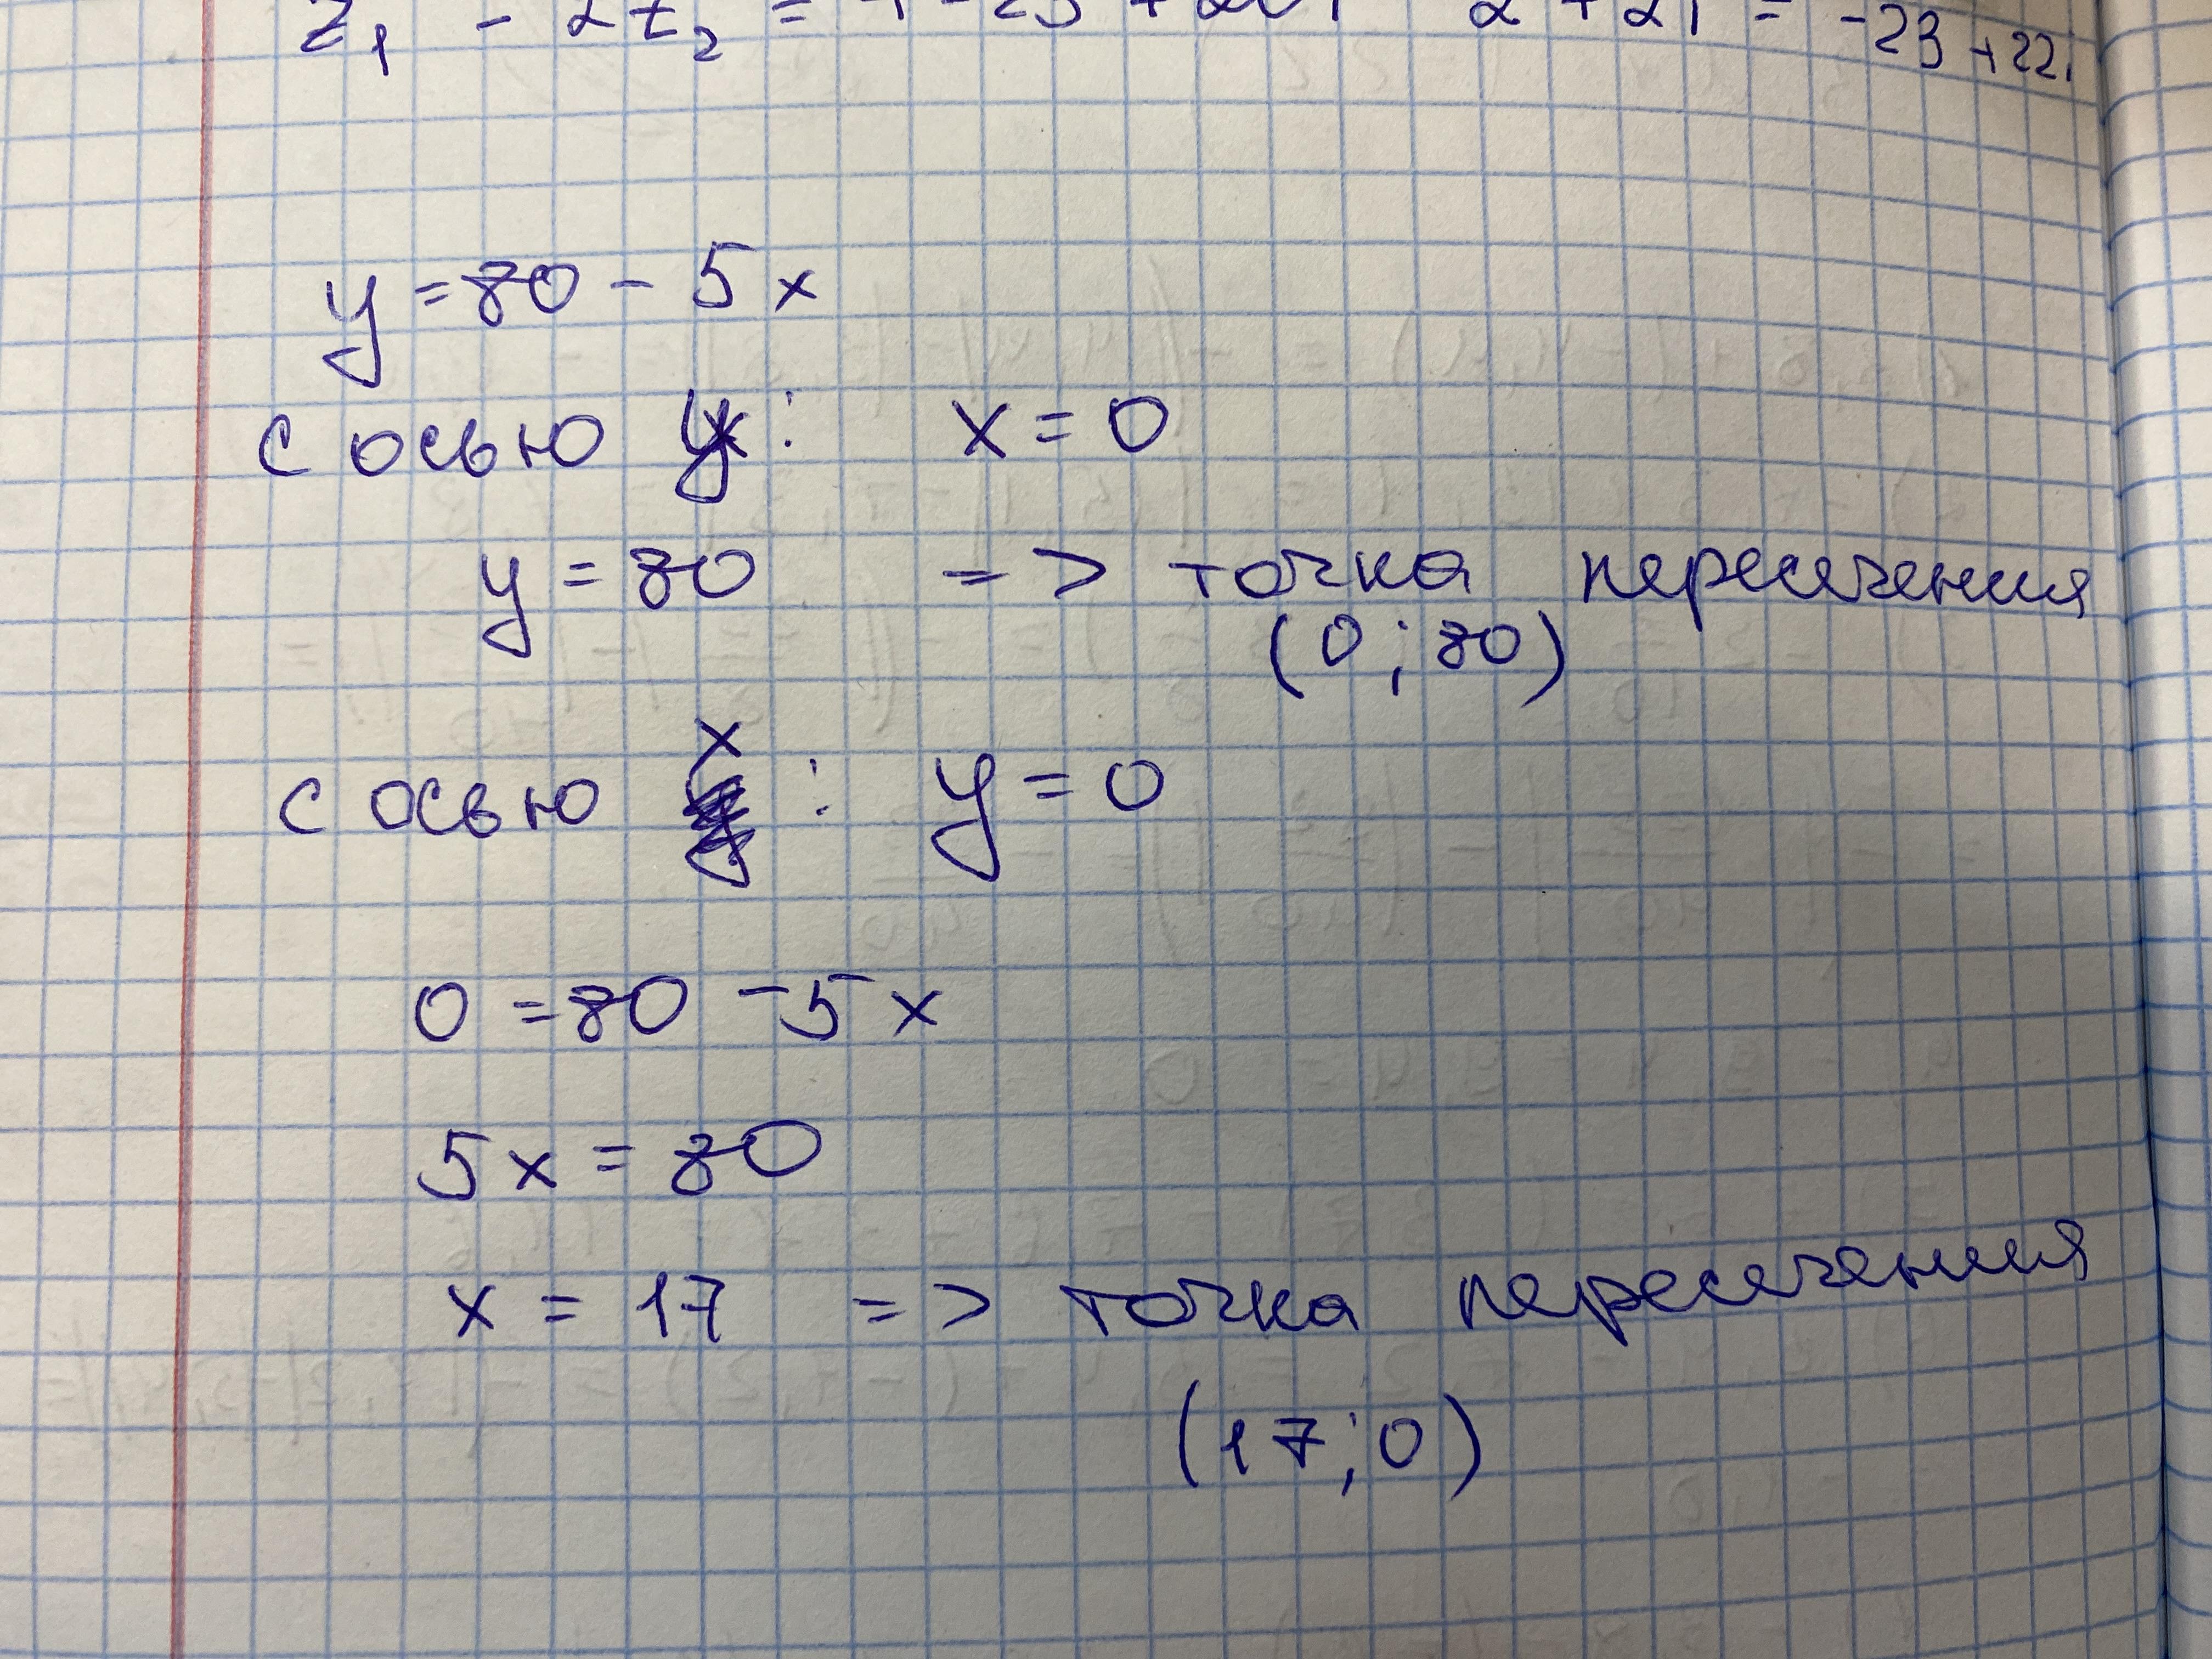 y = 80 - 5x
с осью y: x = 0
y = 80 => точка пересечения
(0; 80)
с осью x: y = 0
0 = 80 - 5x
5x = 80
x = 17 => точка пересечения
(17; 0)